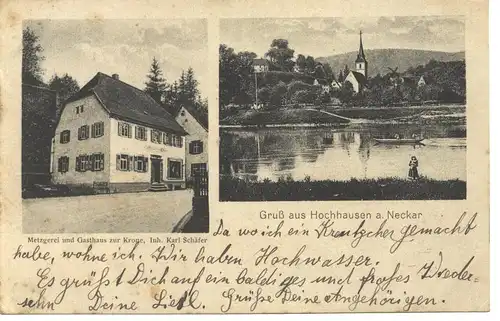 Gruß aus Hochhausen a. Neckar
Metzgerei und Gasthaus zur Krone, Inh. Karl Schäfer
Da wo ich ein Kreutzchen gemacht
habe, wohne ich. Wir haben Hochwasser.
Es grüßt Dich auf ein baldiges und frohes Wieder-
sehn Deine Liesl. Grüße Deine Angehörigen.